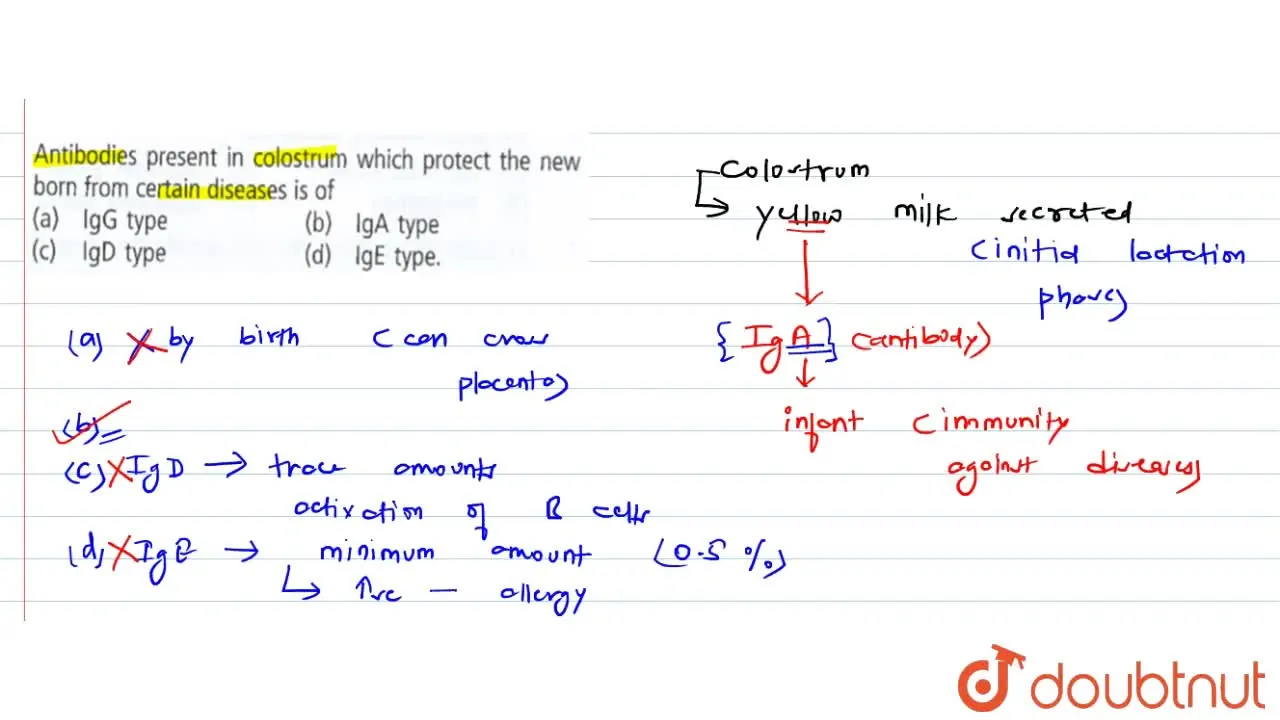 Antibodies present in colostrum which protect the new
born from certain diseases is of
(a) IgG type (b) IgA type
(c) IgD type (d) IgE type.
Colostrum
yellow milk secreted
(initial lactation
phase)
{IgA} (antibody)
infant (immunity
against diseases)
(a) by birth (can cross
placenta)
(b)
(c) IgD → trace amounts
activation of B cells
(d) IgE → minimum amount (0.5 %)
↳ ↑se — allergy
doubtnut